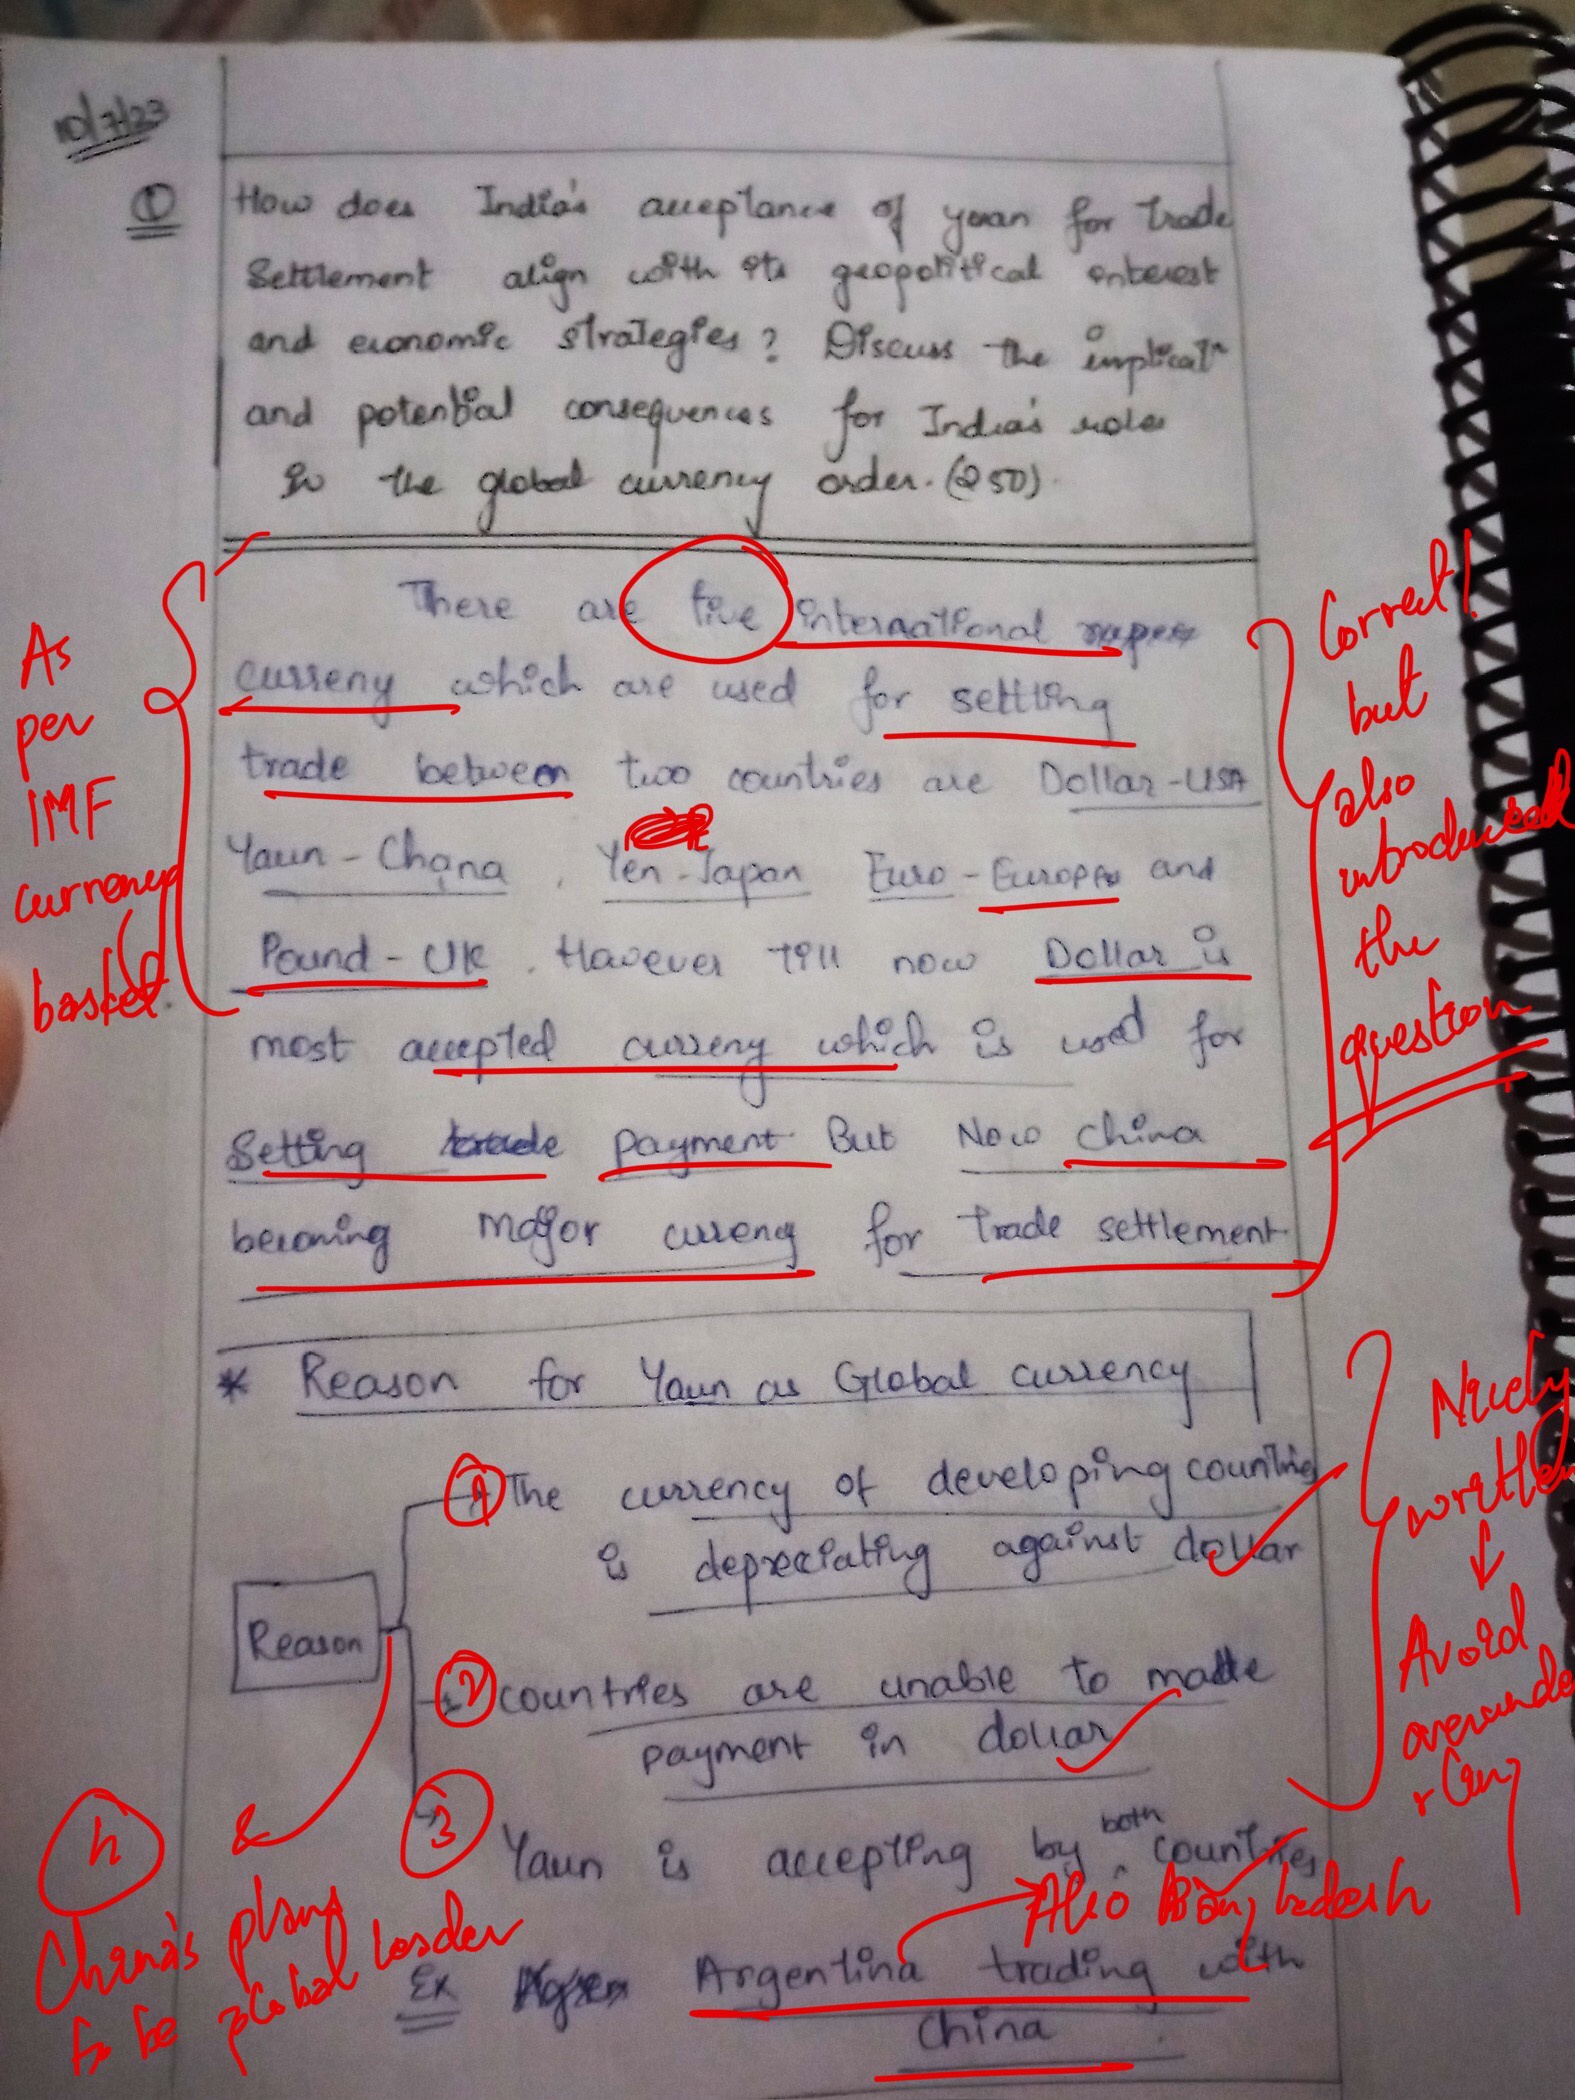 10/7/23
① How does India's acceptance of yuan for trade
Settlement align with its geopolitical interest
and economic strategies? Discuss the implicatn
and potential consequences for India's roles
in the global currency order. (250).
There are five international
curreny which are used for settling
trade between two countries are Dollar-USA
Yaun - China, Yen - Japan Euro - Europe and
Pound - UK. However till now Dollar is
most accepted curreny which is used for
Setting trade payment. But Now china
becoming major curreny for trade settlement.
As
per
IMF
currency
basket
Correct!
but
also
introduce
the
question
* Reason for Yaun as Global currency
Reason
① The currency of developing countries
is depreciating against dollar
② countries are unable to make
payment in dollar
③ Yaun is accepting by both countries
Also Bangladesh
Ex Argentina trading with
China.
Nicely
written
↓
Avoid
&
China's plans
to be global leader